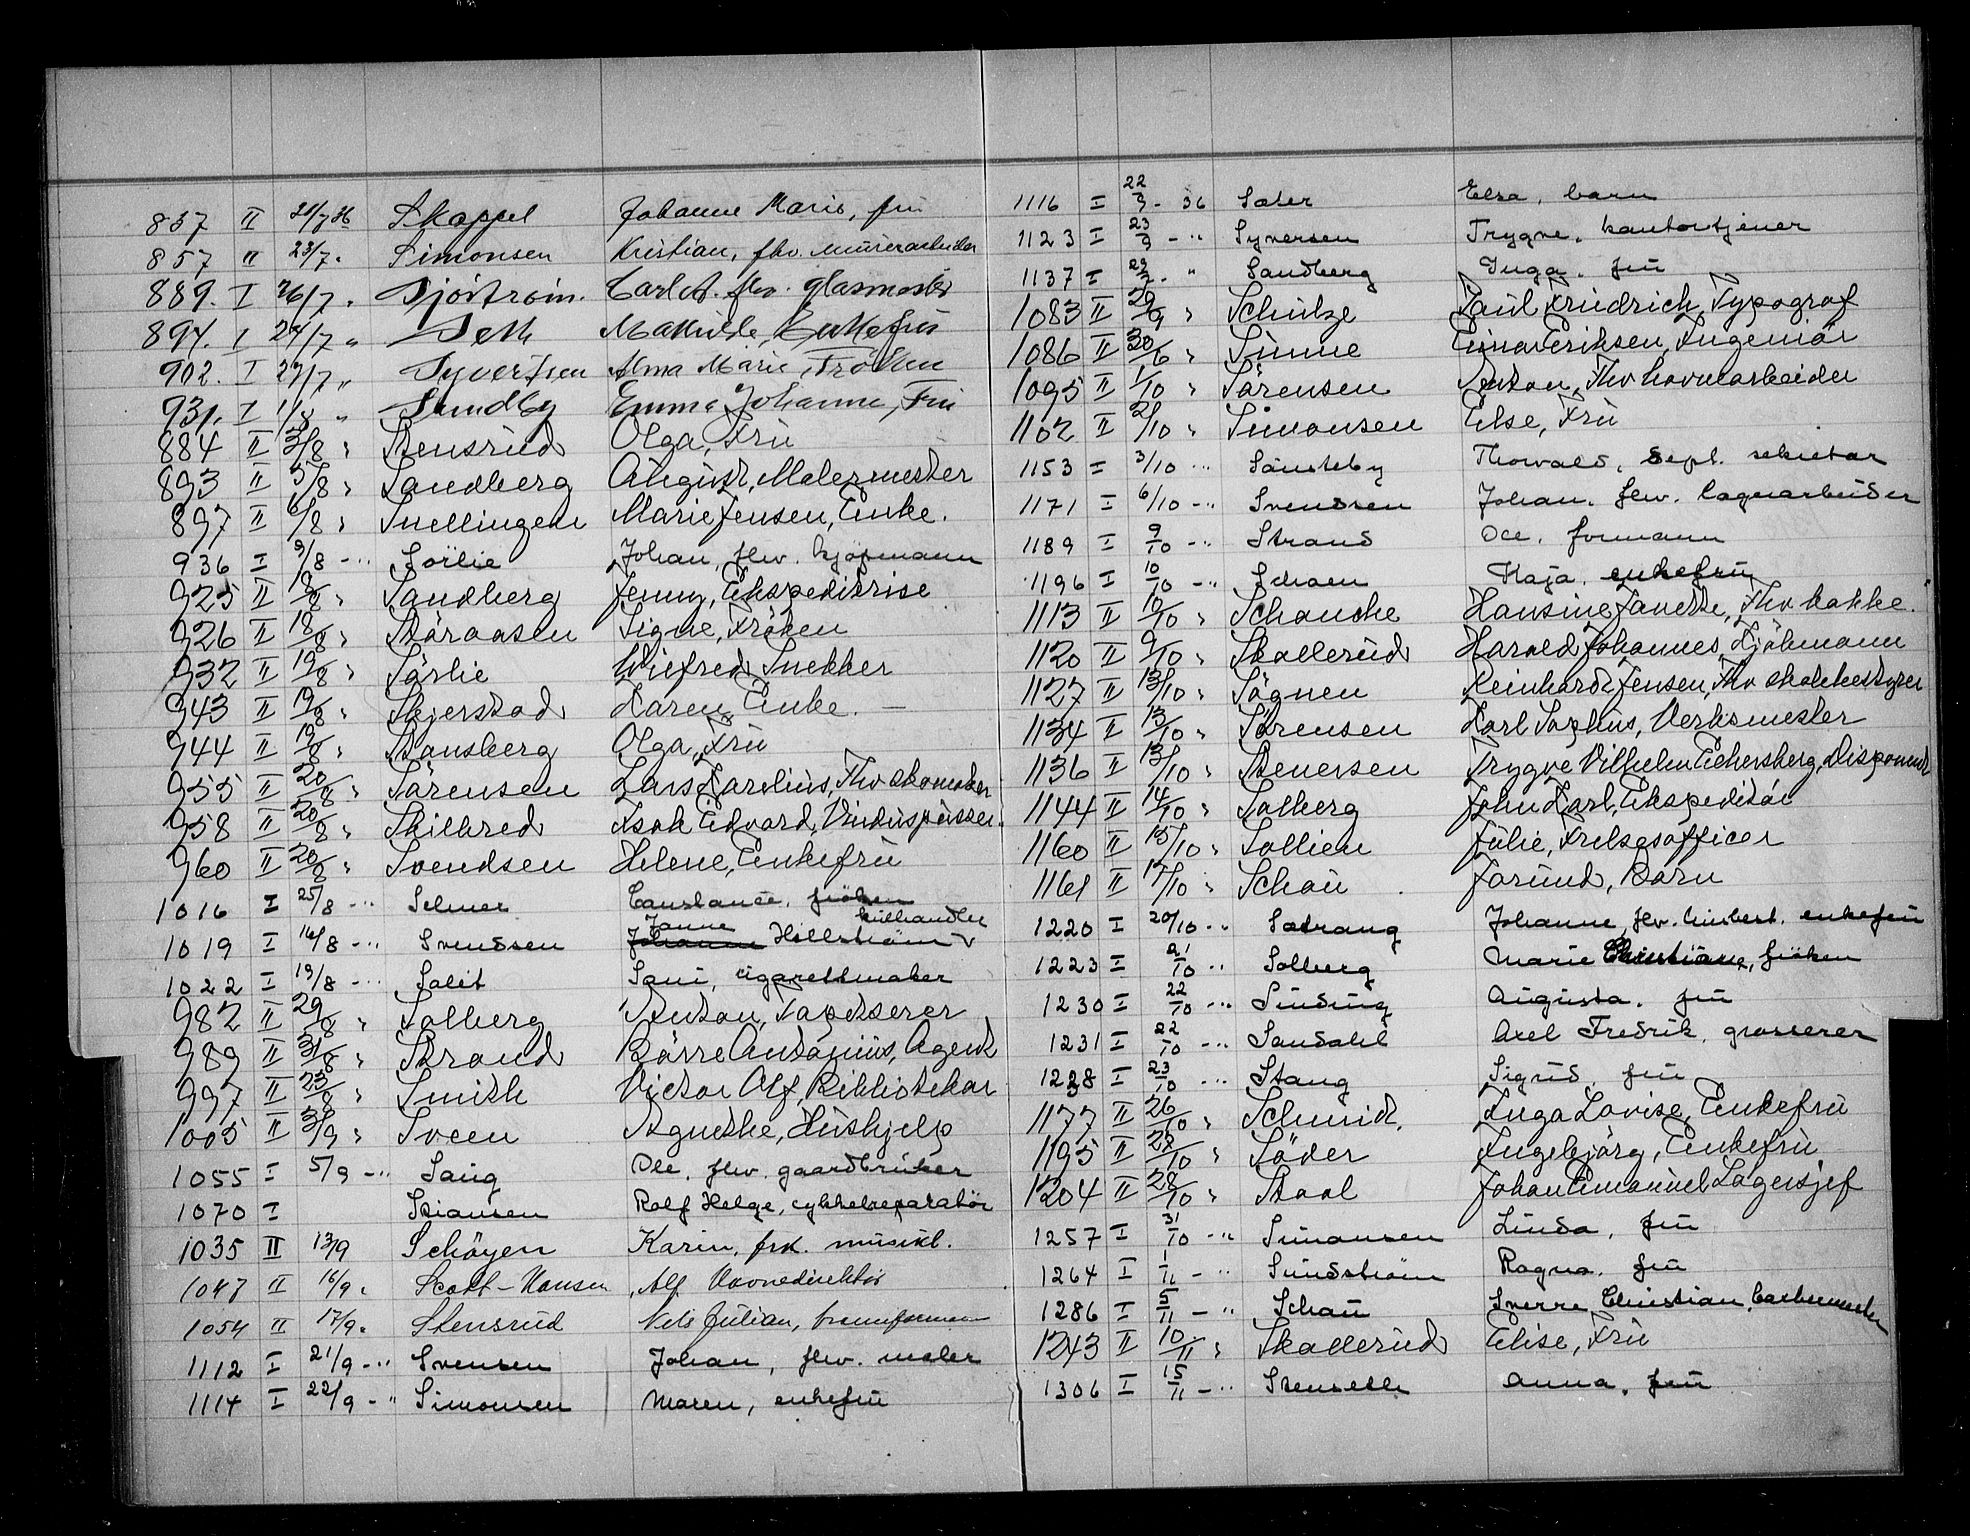 837 II 21/7 36 Skappel Johanne Marie, fru
857 II 23/7 " Simonsen Kristian, fhv. murerarbeider
889. I 26/7 " Sjöström. Carl A. fhv. glasmester
894. I 24/7 " Seth Mathilde, Enkefru
902. I 27/7 " Syvertsen Alma Marie, Fröken
931. I 1/8 " Sundby Emma Johanne, Fru
884 II 3/8 " Stensrud Olga, Fru
893 II 5/8 " Sandberg August, Malermester
897 II 6/8 " Snellingen Marie Jensen, Enke.
936 I 9/8 - " Sörlie Johan, fhv. kjöpmann
925 II 18/8 " Sandberg Jenny, Ekspeditrise
926 II 18/8 " Störaasen Signe, Fröken
932 II 19/8 " Sörlie Wilfred Snekker
943 II 19/8 " Skjerstad Karen, Enke. -
944 II 19/8 " Stansberg Olga, Fru
955 II 20/8 " Sörensen Lars Karelius, Fhv skomaker
958 II 20/8 " Skilbred Isak Edvard, Vinduspusser.
960 II 20/8 " Svendsen Helene, Enkefru
1016 I 25/8 - " Selmer Constance, fröken
1019 I 16/8 - " Svendsen Johanne Janne Hellström kulhandler
1022 I 19/8 - " Salit Sani, cigarettmaker
982 II 29/8 " Solberg Anton, Tapetserer
989 II 31/8 " Strand Börre Antonius, Agent
997 II 23/8 " Smith Victor Alf, Bibliotekar
1005 II 3/9 " Sveen Agnethe, Hushjelp
1055 I 5/9 - " Saug Ole, fhv. gaardbruker
1070 I Stiansen Rolf Helge, cykkelreparatör
1035 II 13/9 Schöyen Karin, frk. musikl.
1047 II 16/9 " Scott-Hansen Alf Havnedirektör
1054 II 17/9 " Stensrud Nils Julian,
1112 I 21/9 - " Svensen Johan, fhv. maler
1114 I 22/9 - " Simonsen Maren, enkefru
1116 I 22/9 - 36 Sæter Elsa, barn
1123 I 23/9 - " Syversen Trygve, kontortjener
1137 I 29/9 - " Sandberg Inga, fru
1083 II 29/9 " Schulze Paul Friedrich, Typograf
1086 II 30/6 " Sinne Einar Eriksen, Ingeniör
1095 II 1/10 " Sörensen Anton, Fhv havnearbeider
1102 II 2/10 " Simonsen Else, Fru
1153 I 3/10 - " Sönsteby Thorvald, Dept. sekretær
1171 I 6/10 - " Svendsen Johan, fhv. lagerarbeider
1189 I 9/10 - " Strand Ole, formann
1196 I 10/10 - " Schaen Kaja, enkefru
1113 II 10/10 " Schanche Hansine Janette, Fhv kokke.
1120 II 9/10 " Skollerud Harald Johannes, Kjöbmann
1127 II 13/10 " Sögnen Reinhardt Jensen, Fhv skolebestyrer
1134 II 13/10 " Sörensen Karl Sophus, Verksmester
1136 II 13/10 " Stenersen Trygve Vilhelm Eckersberg, Disponent
1144 II 14/10 " Solberg John Karl, Ekspeditör
1160 II 15/10 " Sollien Julie, Frelsesofficer
1161 II 17/10 " Schau Jorund, Barn
1220 I 20/10 - " Sætrang Johanne, fhv. husbest. enkefru
1223 I 21/10 " Solberg Marie Christiane, fröken
1230 I 22/10 - " Sinding Augusta, fru
1231 I 22/10 - " Sandahl Axel Fredrik, grosserer
1238 I 23/10 - " Stang Sigrid, fru
1177 II 26/10 " Schmidt. Inga Lovise, Enkefru
1195 II 28/10 " Söder Ingebjörg, Enkefru
1204 II 28/10 " Staal Johan Emanuel Lagersjef
1257 I 31/10 - " Simonsen Linda, fru
1264 I 1/11 - " Sundström Ragna, fru
1286 I 5/11 - " Schau Sverre Christian,
1243 II 10/11 " Skollerud Elise, Fru
1306 I 15/11 - " Stenseth Anna, fru